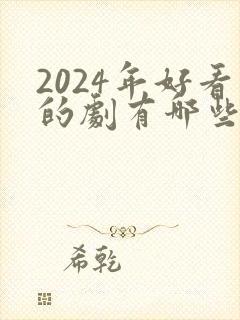 2024年好看
的劇有哪些
希乾